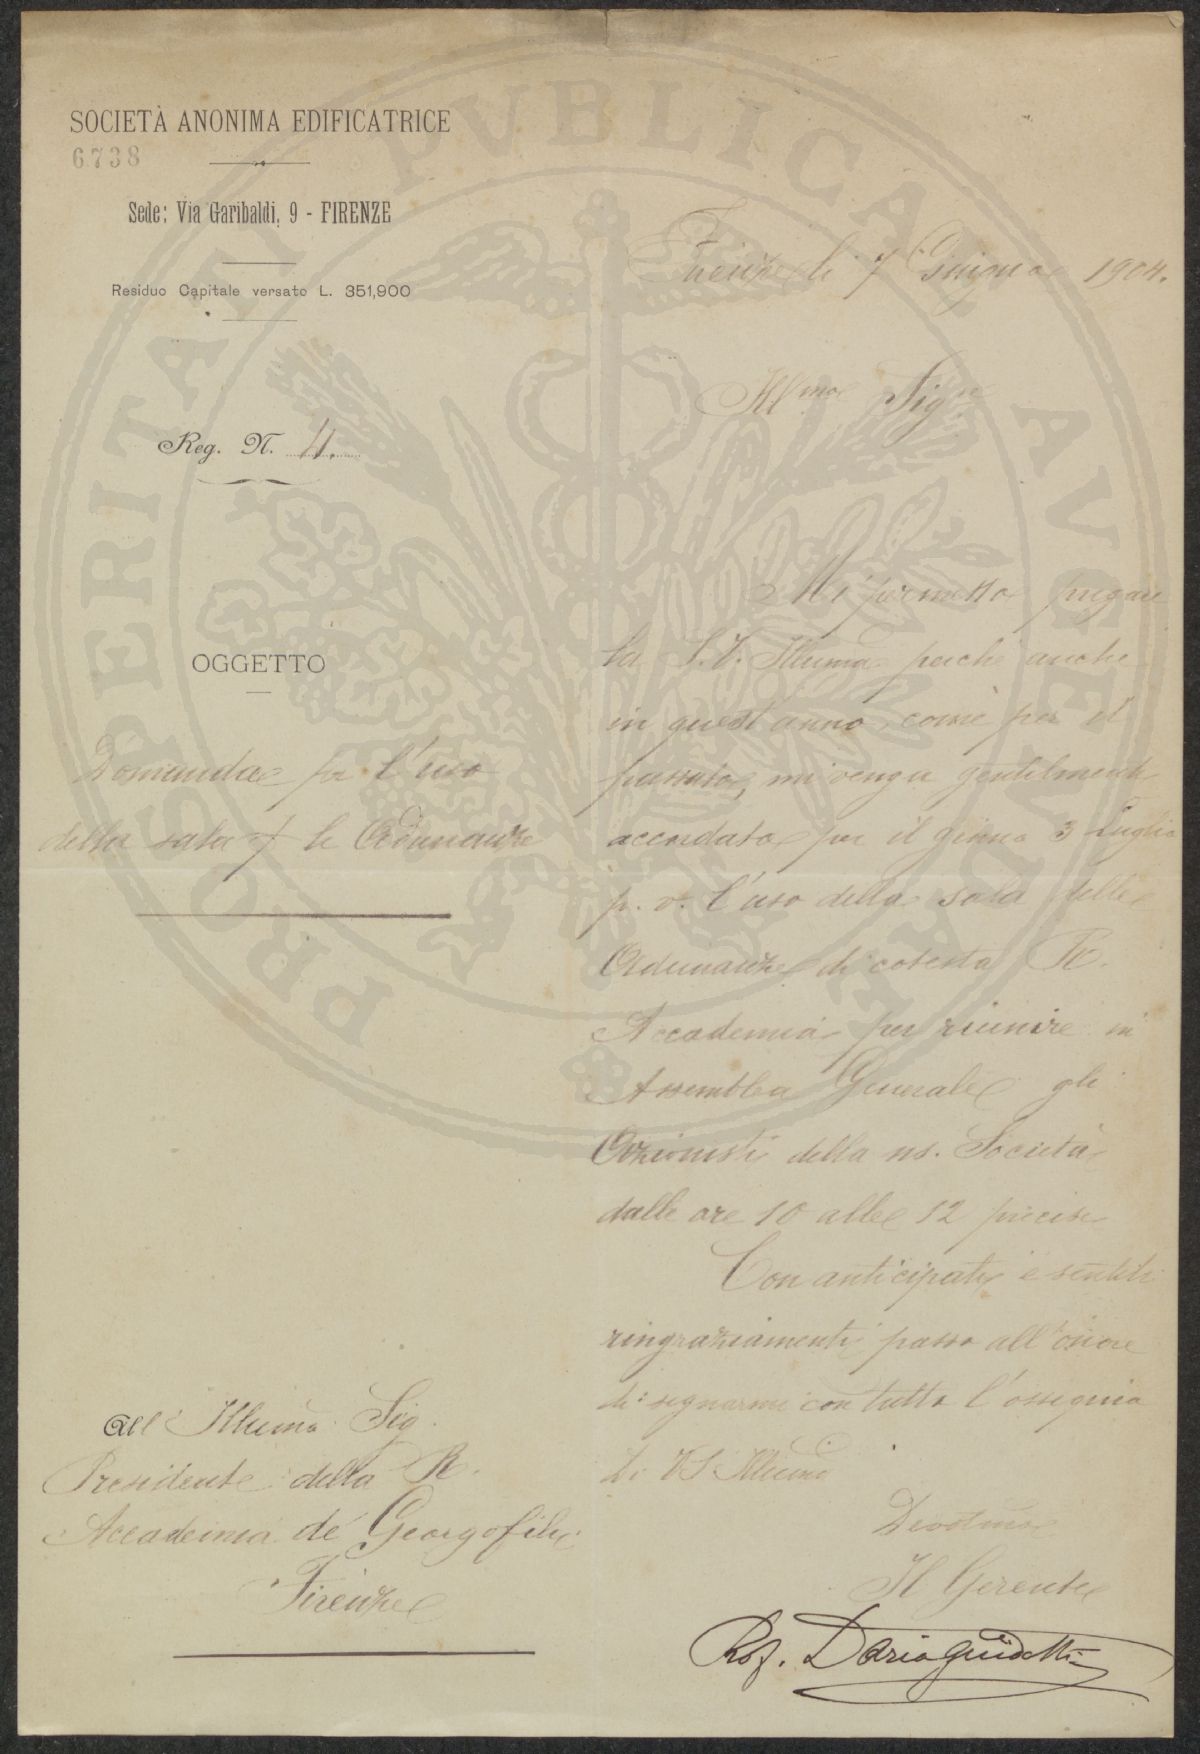 SOCIETÀ ANONIMA EDIFICATRICE
6738
Sede: Via Garibaldi, 9 - FIRENZE
Residuo Capitale versato L. 351,900
Reg. N. 4.
OGGETTO
Domanda per l'uso
della sala p le Adunanze
All' Illumo Sig.
Presidente della R.
Accademia de Georgofili
Firenze
Firenze li 7 Giugno 1904.
Illmo Sigre
Mi permetto pregare
la S.V. Illuma perchè anche
in quest'anno, come per il
passato, mi venga gentilmente
accordato per il giorno 3 Luglio
p. v. l'uso della sala delle
Adunanze di cotesta R.
Accademia per riunire in
Assemblea Generale gli
Azionisti della ns. Società
dalle ore 10 alle 12 precise
Con anticipati e sentiti
ringraziamenti passo all'onore
di segnarmi con tutto l'ossequio
Di V.S. Illuma
Devotmo
Il Gerente
Rof. Dario Guidotti
PROSPERITATI PVBLICAE AVGENDAE